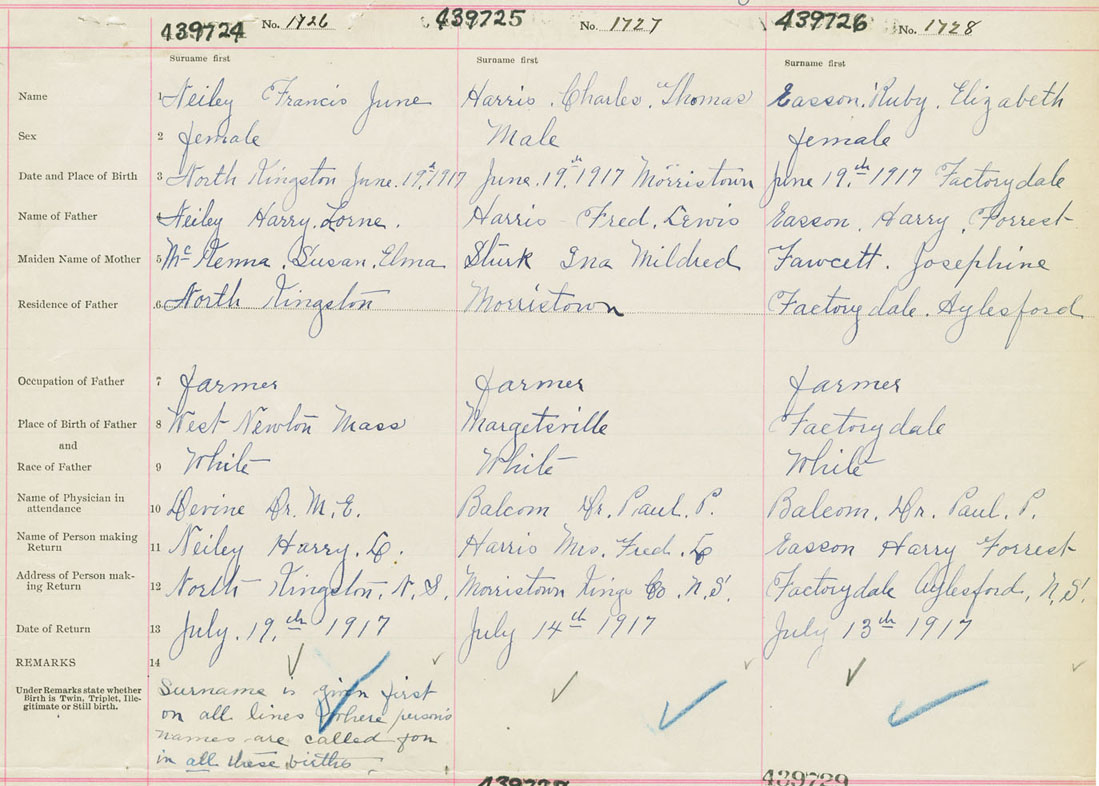 439724 No. 1726 439725 No. 1727 439726 No. 1728
Surname first Surname first Surname first
Name 1 Neiley Francis June Harris. Charles. Thomas Easson. Ruby. Elizabeth
Sex 2 female Male female
Date and Place of Birth 3 North Kingston June. 19th 1917 June. 19th 1917 Morristown June 19th 1917 Factorydale
Name of Father 4 Neiley Harry. Lorne. Harris Fred. Lewis Easson. Harry. Forrest
Maiden Name of Mother 5 McKenna. Susan. Elma Sturk Ina Mildred Fawcett. Josephine
Residence of Father 6 North Kingston Morristown Factorydale. Aylesford
Occupation of Father 7 farmer farmer farmer
Place of Birth of Father 8 West Newton Mass Margetsville Factorydale
and
Race of Father 9 White White White
Name of Physician in
attendance 10 Devine Dr. M. E. Balcom Dr. Paul. P. Balcom. Dr. Paul. P.
Name of Person making
Return 11 Neiley Harry. L. Harris Mrs. Fred. L Easson Harry Forrest
Address of Person mak-
ing Return 12 North Kingston, N. S. Morristown Kings Co. N. S. Factorydale Aylesford, N. S.
Date of Return 13 July. 19th 1917 July 14th 1917 July 13th 1917
REMARKS 14
Under Remarks state whether
Birth is Twin, Triplet, Ille-
gitimate or Still birth.
Surname is given first
on all lines where person's
names are called for
in all these births.
439729